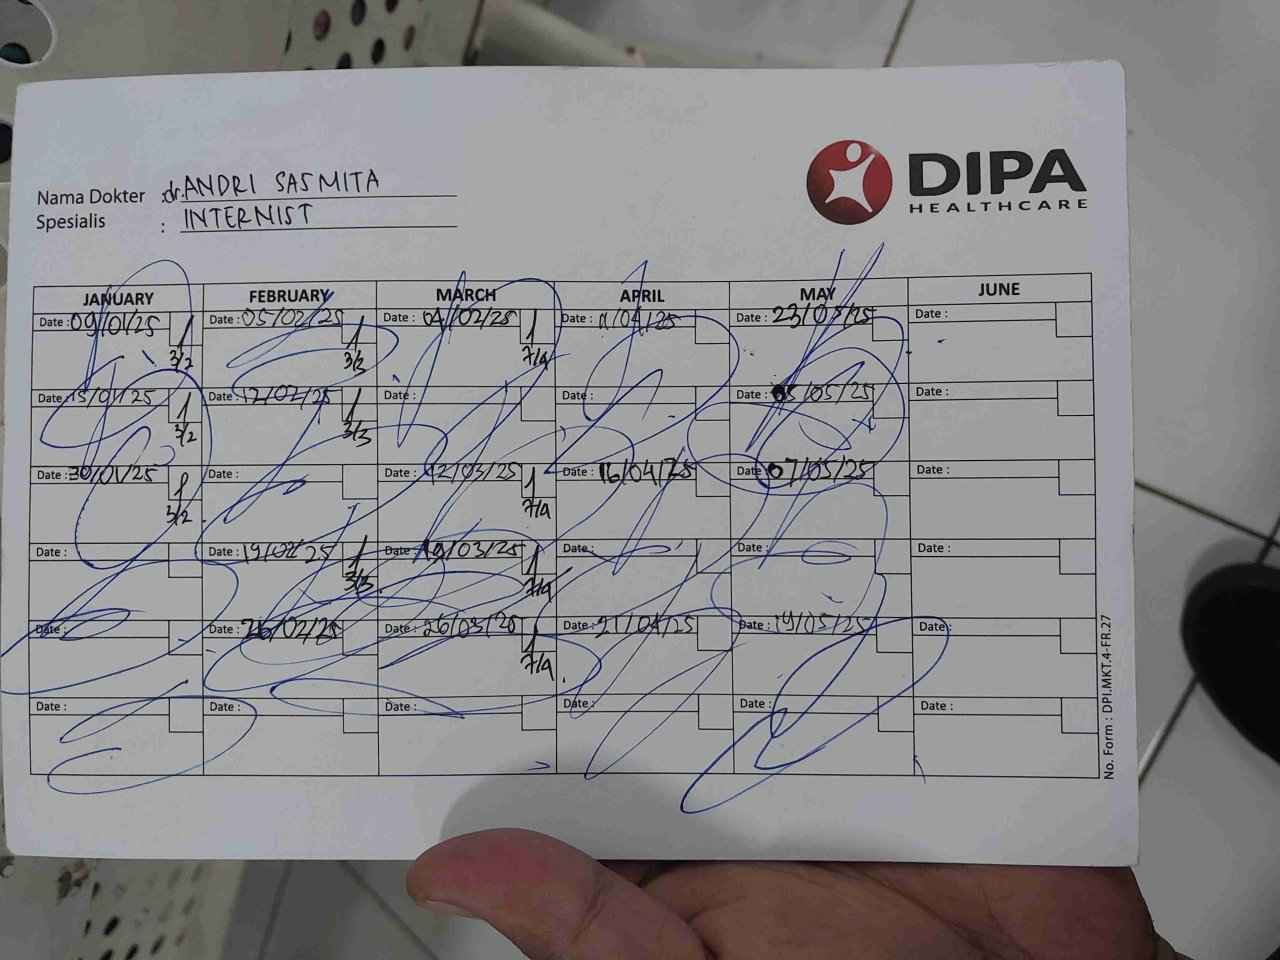 Nama Dokter : dr. ANDRI SASMITA
Spesialis : INTERNIST
DIPA
HEALTHCARE
JANUARY FEBRUARY MARCH APRIL MAY JUNE
Date : 09/01/25 Date : 05/02/25 Date : 04/02/25 Date : 11/04/25 Date : 23/05/25 Date :
3/2 3/3 7/4
Date : 15/01/25 Date : 12/02/25 Date : Date : Date : 05/05/25 Date :
3/2 3/3
Date : 30/01/25 Date : Date : 12/03/25 Date : 16/04/25 Date : 07/05/25 Date :
3/2 7/4
Date : Date : 19/02/25 Date : 19/03/25 Date : Date : Date :
3/3 7/4
Date : Date : 26/02/25 Date : 26/03/25 Date : 21/04/25 Date : 19/05/25 Date :
7/4
Date : Date : Date : Date : Date : Date :
No. Form : DPI.MKT.4-FR.27